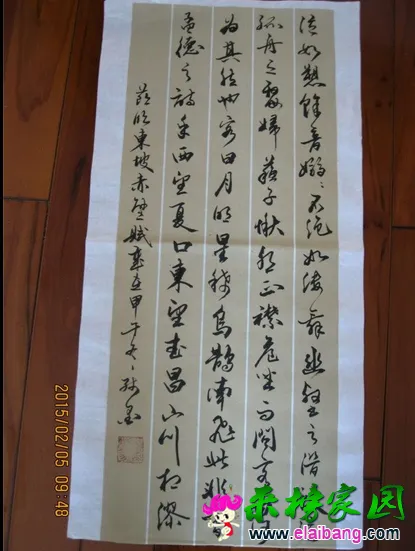 泣如愬餘音嫋〻不绝如缕舞幽壑之潜
孤舟之嫠婦蘇子愀然正襟危坐而問
为其然也客曰月明星稀烏鵲南飛此非
孟德之詩乎西望夏口東望武昌山川相繆
東坡赤壁賦歲在甲午
2015/02/05 09:48
乘榜家园
www.elaibang.com